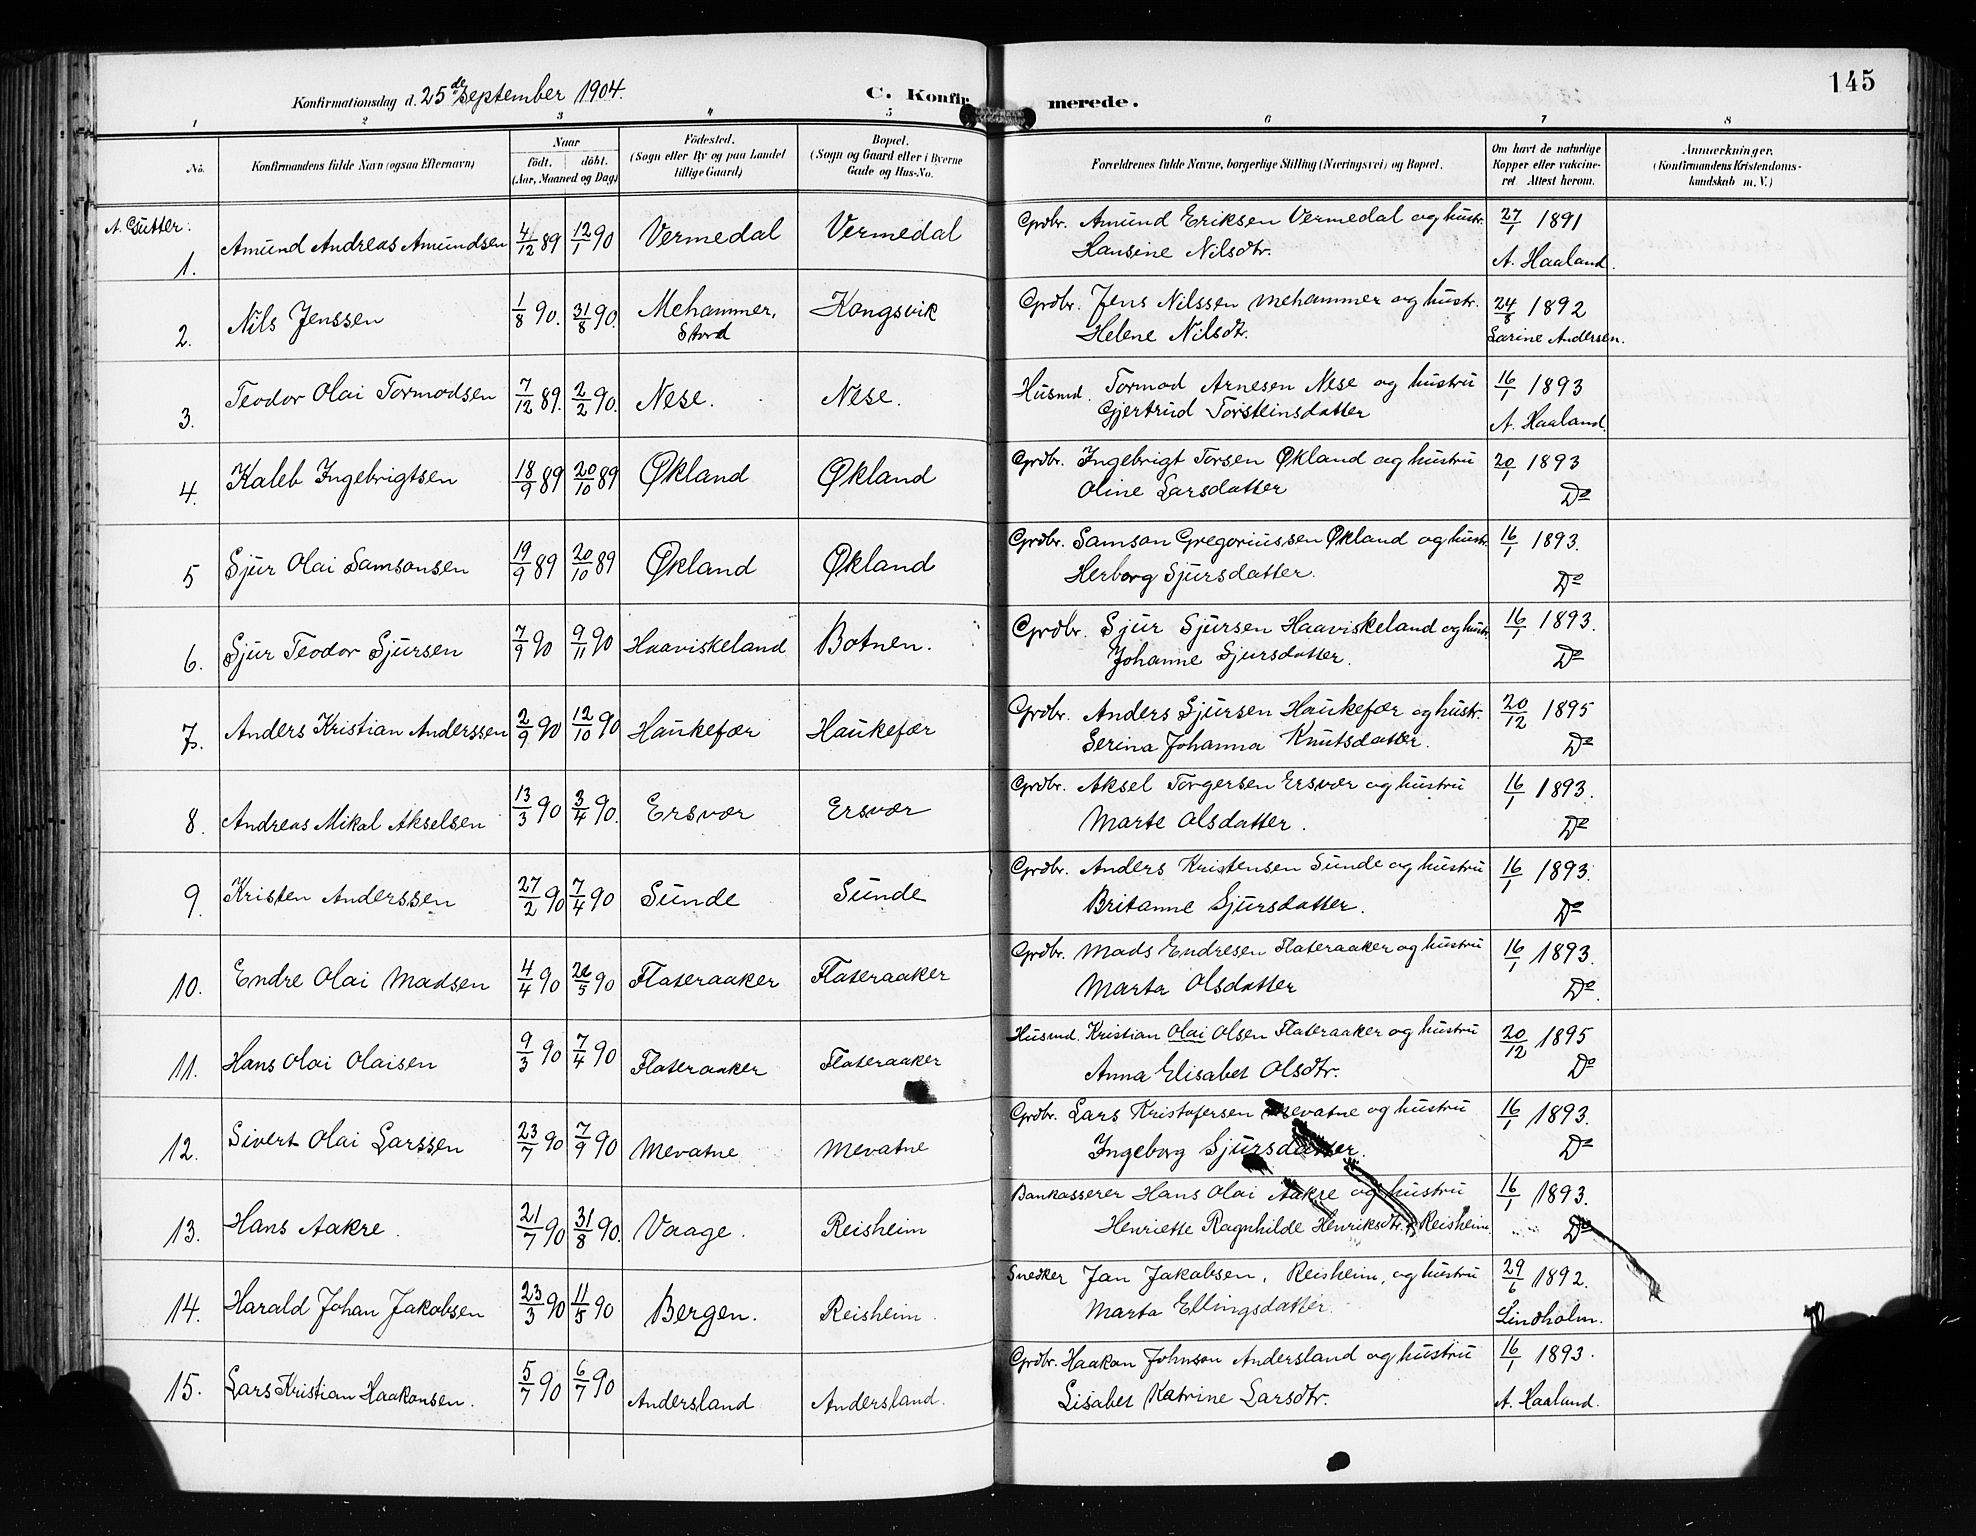 145
Konfirmationsdag d. 25de September 1904. C. Konfirmerede.
1 2 3 4 5 6 7 8
No. Konfirmandens fulde Navn (ogsaa Efternavn) Naar födt. döbt. (Aar, Maaned og Dag) Födested. (Sogn eller By og paa Landet tillige Gaard) Bopæl. (Sogn og Gaard eller i Byerne Gade og Hus-No. Foreldrenes fulde Navne, borgerlige Stilling (Næringsvei) og Bopæl. Om havt de naturlige Kopper eller vakcineret Attest herom. Anmærkninger. (Konfirmandens Kristendomskundskab m. V.)
A. Gutter:
1. Amund Andreas Amundsen 4/12 89 12/1 90 Vermedal Vermedal Grdbr. Amund Eriksen Vermedal og hustr. 27/1 1891
Hansine Nilsdtr. A. Haaland.
2. Nils Jenssen 1/8 90. 31/8 90. Mehammer, Stord Kongsvik Grdbr. Jens Nilssen Mehammer og hustr. 24/8 1892
Helene Nilsdtr. Larine Andersen.
3. Teodor Olai Tormodsen 7/12 89. 2/2 90. Nese. Nese. Husmd. Tormod Arnesen Nese og hustru 16/1 1893
Gjertrud Torsteinsdatter A. Haaland.
4. Kaleb Ingebrigtsen 18/9 89 20/10 89 Økland Økland Grdbr. Ingebrigt Torsen Økland og hustru 20/1 1893
Oline Larsdatter Do
5 Sjur Olai Samsonsen 19/9 89 20/10 89 Økland Økland Grdbr. Samson Gregoriussen Økland og hustr. 16/1 1893.
Herborg Sjursdatter. Do
6. Sjur Teodor Sjursen 7/9 90 9/11 90 Haaviskeland Botnen. Grdbr. Sjur Sjursen Haaviskeland og hustr. 16/1 1893.
Johanne Sjursdatter. Do
7. Anders Kristian Anderssen 2/9 90 12/10 90 Haukefær Haukefær Grdbr. Anders Sjursen Haukefær og hustr. 20/12 1895
Serina Johanna Knutsdatter. Do
8. Andreas Mikal Akselsen 13/3 90 3/4 90. Ersvær Ersvær Grdbr. Aksel Torgersen Ersvær og hustru 16/1 1893.
Marte Olsdatter. Do
9. Kristen Anderssen 27/2 90 7/4 90 Sunde Sunde Grdbr. Anders Kristensen Sunde og hustru 16/1 1893.
Britanne Sjursdatter. Do
10. Endre Olai Madsen 4/4 90 26/5 90 Flateraaker Flateraaker Grdbr. Mads Endresen Flateraaker og hustru 16/1 1893.
Marta Olsdatter Do.
11. Hans Olai Olaisen 9/3 90 7/4 90 Flateraaker Flateraaker Husmd. Kristian Olai Olsen Flateraaker og hustru 20/12 1895
Anna Elisabet Olsdtr. Do
12. Sivert Olai Larssen 23/7 90 7/9 90 Mevatne Mevatne Grdbr. Lars Kristofersen Mevatne og hustru 16/1 1893.
Ingeborg Sjursdatter. Do
13. Hans Aakre. 21/7 90 31/8 90. Vaage. Reisheim Bankasserer Hans Olai Aakre og hustru 16/1 1893.
Henriette Ragnhilde Henriksdtr. Reisheim. Do
14. Harald Johan Jakobsen 23/3 90 11/5 90 Bergen. Reisheim. Snedker Jan Jakobsen, Reisheim, og hustru 29/6 1892.
Marta Ellingsdatter. Lindholm.
15. Lars Kristian Haakonsen. 5/7 90 6/7 90 Andersland Andersland. Grdbr. Haakon Johnson Andersland og hustru 16/1 1893.
Lisabet Katrine Larsdtr. A. Haaland.